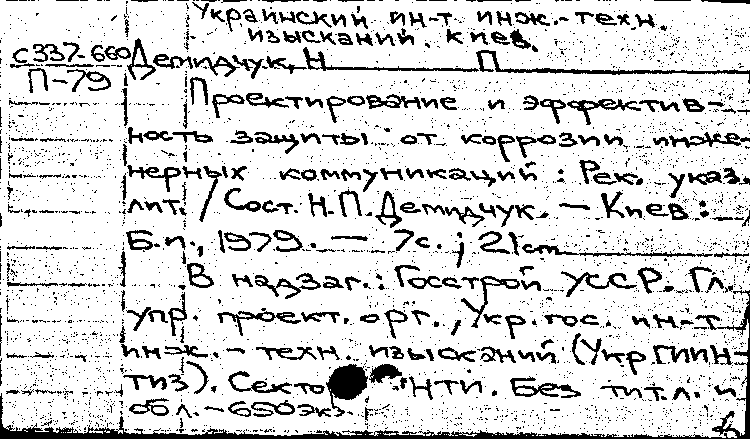 Украинский ин-т инж.-техн.
изысканий. Киев.
С337-660 Демидчук, Н П
П-79
Проектирование и эффектив-
ность защиты от коррозии инже-
нерных коммуникаций : Рек. указ.
лит. / Сост. Н.П.Демидчук. — Киев :
Б.и., 1979. — 7с. ; 21см
В надзаг.: Госстрой УССР. Гл.
упр. проект. орг., Укр.гос. ин-т
инж.-техн. изысканий (УкрГИИН-
ТИЗ). НТИ. Без тит.л. и
обл. - 650экз.